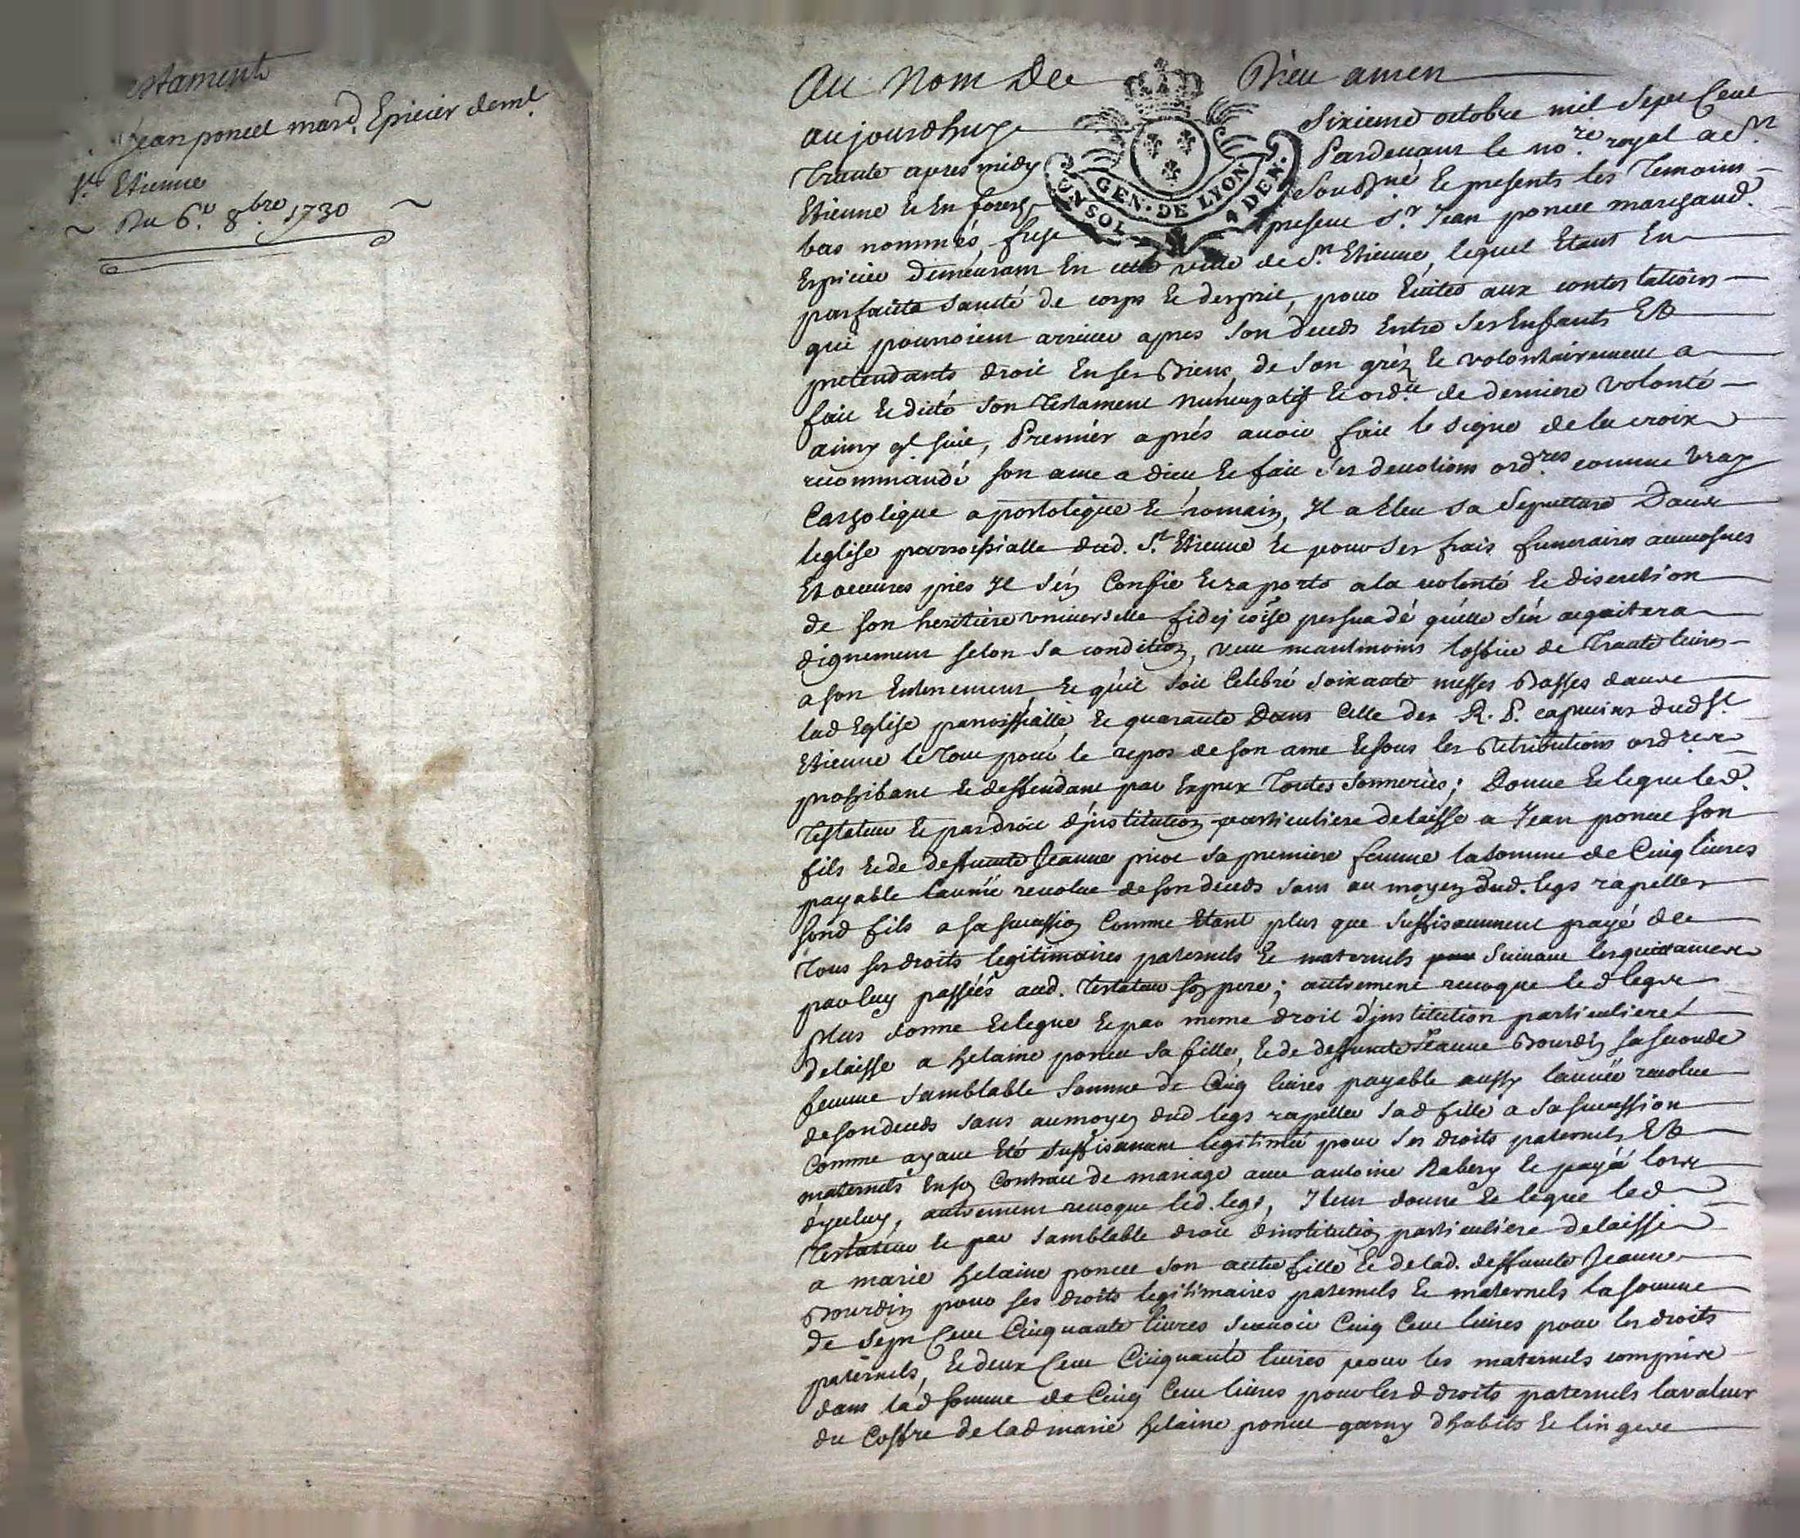 estament
Jean poncet mard. Epicier de md.
St. Etienne
~ Du 6e. 8bre. 1730 ~
Au Nom De Dieu amen
aujourdhuy Sixieme octobre mil Sept Cent
Trante apres midy Pardevant le nore. royal a St.
Etienne Et En forest Sousigné Et presents les Temoins
bas nommés, fust present Sr. Jean poncet marchand
GEN. DE LYON
4 DEN.
Epicier demeurant En cette ville de St. Etienne, lequel Etant En
parfaite Santé de corps Et desprit, pour Eviter aux contestations
qui pourroient arriver apres Son deceds Entre Ses Enfants Et
pretendants droit En Ses Biens, de Son gréz Et volontairement a
fait Et dicté Son Testament nuncupatif Et ordce. de derniere volonté
ainsy q. suit, Premier aprés avoir fait le Signe de la croix
recommandé Son ame a dieu Et fait Ses devotions ordres. comme vray
Catholique apostolique Et romain, Il a Eleu Sa Sepulture Dans
leglise parroissialle dud. St. Etienne Et pour Ses frais funeraires aumosnes
Et oeuvres pies Il S'en Confie Et raporte a la volonté Et discretion
de Son heritiere universelle fideicoise persuadé qu'elle S'en aquitera
dignement Selon Sa condition, veut neantmoins loffice de Trante livres
a Son Enterrement Et qu'il Soit Celebré Soixante messes Basses dans
lad Eglise parroissialle, Et quarante Dans Celle des R. P. capucins dud St.
Etienne le Tout pour le repos de Son ame Et Sous les Retributions ordres.
prohibant Et deffendant par Exprex Toutes Sonneries; Donne Et legue led.
Testateur Et par droit d'institution particuliere delaisse a Jean poncet Son
fils Et de deffunte Jeanne picot Sa premiere femme la Somme de Cinq livres
payable l'année revolue de Son deceds Sans au moyen dud. legs rapeller
Sond fils a Sa Succession Comme Etant plus que Suffisamment payé de
Tous Ses droits legitimaires paternels Et maternels Suivant les quittances
par luy passées aud. Testateur Son pere; autrement revoque led legs
Plus donne Et legue Et par meme droit d'institution particuliere
delaisse a helaine poncet Sa fille, Et de deffunte Jeanne Bourdin Sa Seconde
femme Samblable Somme de Cinq livres payable aussy l'année revolue
de Son deceds Sans au moyen dud legs rapeller Sad fille a Sa Succession
Comme ayant Eté Suffisament legitimée pour Ses droits paternels Et
maternels En Son Contract de mariage avec antoine Et payée lors
d'yceluy, autrement revoque led. legs, Item donne Et legue led
Testateur Et par Samblable droit d'institution particuliere delaisse
a marie helaine poncet Son autre fille Et de lad. deffunte Jeanne
Bourdin pour Ses droits legitimaires paternels Et maternels la Somme
de Sept Cent Cinquante livres Scavoir Cinq Cent livres pour les droits
paternels, Et deux Cent Cinquante livres pour les maternels compris
dans lad Somme de Cinq Cent livres pour les d droits paternels la valeur
du Coffre de lad marie helaine poncet garny dhabits Et linges